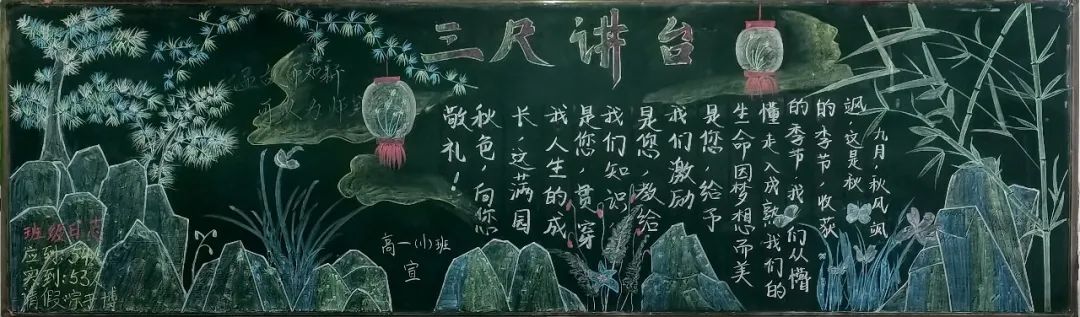 三尺讲台
温故而知新
可以为师
九月,秋风飒
飒,这是秋
的季节,收获
的季节,我们从懵
懂走入成熟,我们的
生命因梦想而美
是您,给予
我们激励
是您,教给
我们知识
是您,贯穿
我人生的成
长 这满园
秋色,向您
敬礼!
高一(11)班
宣
班级日志
应到:54
实到:53
请假: